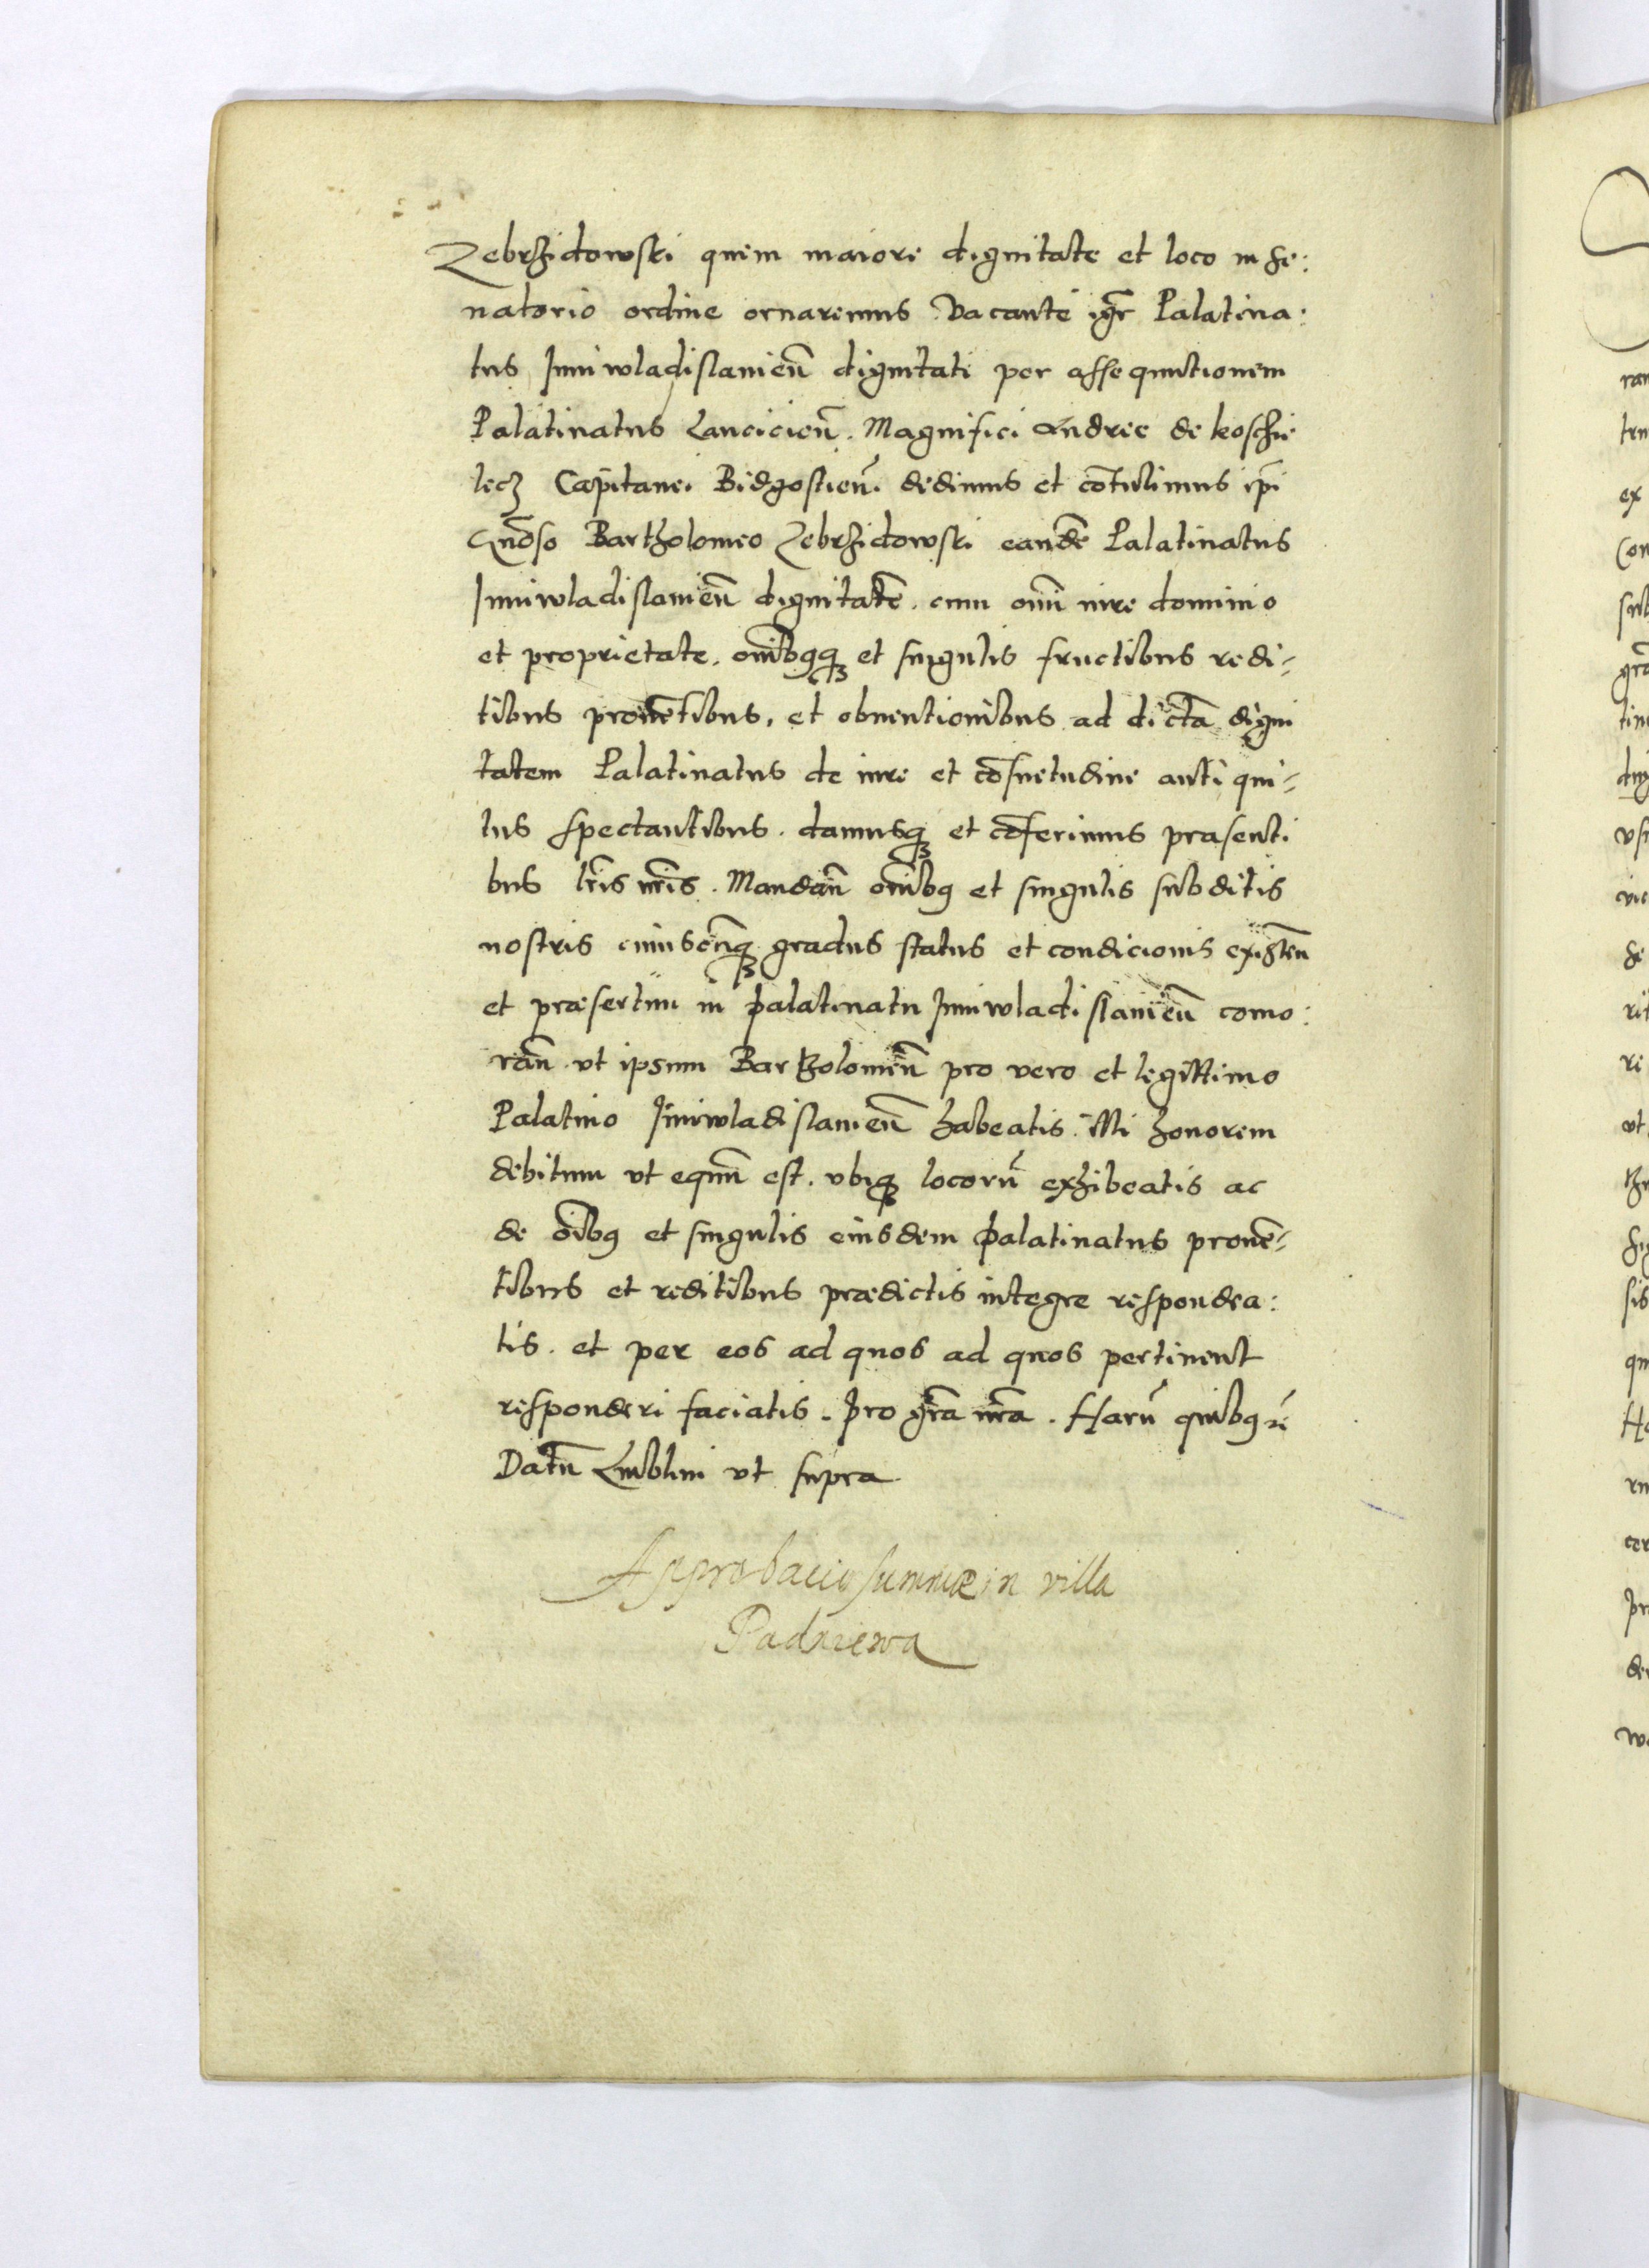 Zebrzidowski quem maiore dignitate et loco in se:
natorio ordine ornaremus Vacante igr̃ Palatina:
tus Iuniwladislauien̄ dignitati per assequutionem
Palatinatus Lancicien̄. Magnifici Andree de Koschie
lecz Capitanei Bidgostien̄. dedimus et cōtulimus ip̄i
Gn̄oso Bartholomeo Zebrzidowski eandē Palatinatus
Iuniwladislauien̄ dignitatē. cum om̄i iure dominio
et proprietate. om̄ibꝰqꝫ et singulis fructibus redi-
tibus prouētibus, et obuentionibus ad dictā digni
tatem Palatinatus de iure et cōsuetudine antiqui-
tus spectantibus. damusqꝫ et cōferimus præsenti
bus lr̄is nr̄is. Mandan̄ om̄ibꝰ et singulis subditis
nostris cuiuscūqꝫ gradus status et condicionis existen̄
et præsertim in palatinatu Iuniwladislauien̄ como:
ran̄ vt ipsum Bartholomeū pro vero et legittimo
Palatino Iuniwladislauien̄ habeatis. illi honorem
debitum vt equū est. vbiqꝫ locorū exhibeatis ac
de oībꝰ et singulis eiusdem palatinatus prouē-
tibus et reditibus prædictis integre respondea:
tis. et per eos ad quos ad quos pertinent
responderi faciatis. pro gr̄a nr̄a. Harū quibꝰ
Datū Lublini vt supra
Approbacio summæ in villa